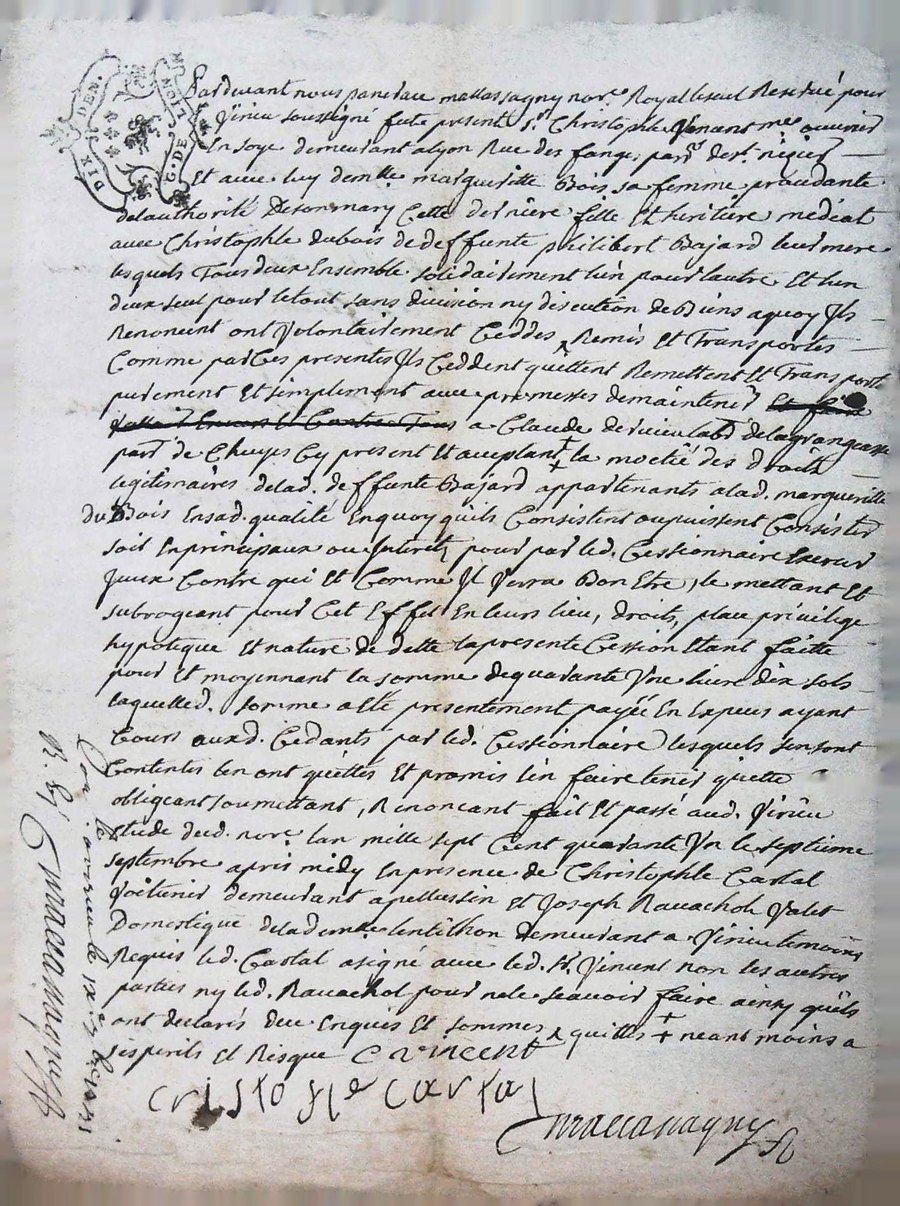 DIX DEN.
G. DE LION
Pardevant nous marcassagny nore Royal Reservé pour
Virieu soussigné fute present Sr Christophle Venant me ouvrier
En soye demeurant alyon Rue des fanges parse de St nizier
Et avec luy demlle margueritte Bois sa femme procedante
delauthorité De son mary Cette derniere fille Et heritiere
avec Christophle dubois de deffunte philibert Bajard leur mere
lesquels Tous deux Ensemble solidairement lun pour lautre Et lun
deux seul pour letout sans division ny discution de Biens aquoy Ils
Renoncent ont Volontairement Ceddes x Remis Et Transportes
Comme par Ces presentes Ils Ceddent quittent Remettent Et Transporte
purement Et simplement avec promesses demaintenir
a Claude labr delagrangeasse
parse de Chuyes Cy present Et acceptant + la moetié des droits
legitimaires delad. deffunte Bajard appartenants alad. margueritte
du Bois Ensad. qualité Enquoy quils Consistent ou puissent Consister
soit En principaux ou Interets, pour par led. Cessionnaire Exercer
Iceux Contre qui Et Comme Il Verra Bon Etre, le mettant Et
subrogeant pour Cet Effet En leurs lieu, droits, place privilege
hypoteque Et nature de dette la presente Cession Etant faitte
pour Et moyennant la somme de quarante Une livre dix sols
laquelled. somme a Eté presentement payée En Especes ayant
Cours auxd. Cedants par led. Cessionnaire lesquels sen sont
Contentes len ont quittes Et promis len faire tenir quitte
obligeant soumettant, Renoncant fait Et passé aud. Virieu
Etude dud. nore lan mille sept Cent quarante Un le septieme
septembre apres midy En presence de Christophle Cartal
Voiturier demeurant apellussin Et Joseph Ravachol Valet
Domestique delademlle lentilhon demeurant a Virieu temoins
Requis led. Cartal a signé avec led. Sr. Vincent non les autres
parties ny led. Ravachol pour ne le scavoir faire ainsy quils
ont declarés De ce Enquis Et sommes x quittes + neantmoins a
ses perils Et Risque C vincent
cristofle cartal
marcassagny